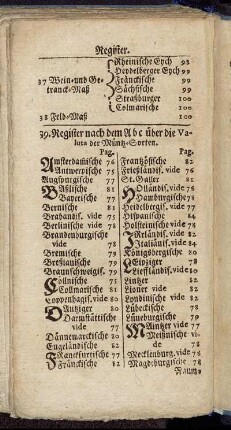 Register.
Rheinische Eych 98
Heydelberger Eych 99
37 Wein- und Ge- Fränckische 99
tranck-Maß Sächsische 99
Straßburger 100
Colmarische 100
38 Feld-Maß 100
39. Register nach dem A b c über die Va-
luta der Müntz-Sorten.
Pag.
Amsterdamische 76
Antwerpische 75
Augspurgische 77
Baßlische 81
Bayerische 77
Bernische 81
Brabandis. vide
Berlinische vide 78
Brandenburgische
vide 78
Bremische 79
Breßlauische 79
Braunschweigis.
Cöllnische 78
Collmarische 81
Coppenhagis. vide 80
Dantziger 80
Darmstättische
vide 77
Dännemarckische 80
Engeländische
Franckfurtische 77
Fränckische 82
Pag.
Frantzösische 82
Frießländis. vide 76
St. Galler 81
Holländis. vide 76
Hamburgische 78
Heidelbergis. vide 77
Hispanische 84
Holsteinische vide 78
Irländis. vide 82
Italiänis. vide 84
Königsbergische 80
Leipziger 78
Liefländis. vide 80
Lintzer 82
Lioner vide 82
Londinische vide 82
Lübeckische 78
Lüneburgische 79
Mäintzer vide 77
Meißnische vi-
de 78
Mecklenburg. vide 78
Magdeburgische 78
Naum-